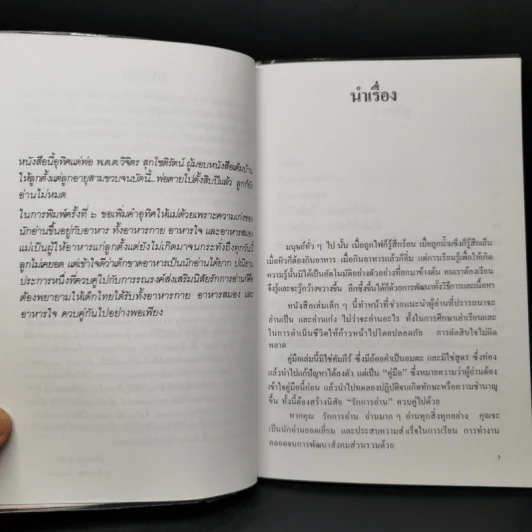 หนังสือนี้อุทิศแด่พ่อ พ.ต.ต.วิจิตร สุกโชติรัตน์ ผู้มอบหนังสือเต็มบ้าน
ให้ลูกตั้งแต่ลูกอายุสามขวบจนบัดนี้..พ่อตายไปตั้งสิบปีแล้ว ลูกก็ยัง
อ่านไม่หมด
ในการพิมพ์ครั้งที่ ๖ ขอเพิ่มคำอุทิศให้แม่ด้วยเพราะความเก่งของ
นักอ่านขึ้นอยู่กับอาหาร ทั้งอาหารกาย อาหารใจ และอาหารสมอง
แม่เป็นผู้ให้อาหารแก่ลูกตั้งแต่ยังไม่เกิดมาจนกระทั่งถึงทุกวันนี้
ลูกไม่เคยอด แต่เข้าใจดีว่าเด็กขาดอาหารเป็นนักอ่านได้ยาก ปณิธาน
ประการหนึ่งที่ควบคู่ไปกับการรณรงค์ส่งเสริมนิสัยรักการอ่านก็คือ
ต้องพยายามให้เด็กไทยได้รับทั้งอาหารกาย อาหารสมอง และ
อาหารใจ ควบคู่กันไปอย่างพอเพียง
นำเรื่อง
มนุษย์ทั่ว ๆ ไป นั้น เมื่อถูกไฟก็รู้สึกร้อน เมื่อถูกน้ำแข็งก็รู้สึกเย็น
เมื่อหิวก็ต้องกินอาหาร เมื่อกินอาหารแล้วก็อิ่ม แต่การเรียนรู้เพื่อให้เกิด
ความรู้นั้นมิได้เป็นอัตโนมัติอย่างตัวอย่างที่ยกมาข้างต้น คนเราต้องเรียน
จึงรู้และจะรู้กว้างขวางขึ้น ลึกซึ้งขึ้นได้ก็ด้วยการพัฒนาทั้งวิธีการและเนื้อหา
หนังสือเล่มเล็ก ๆ นี้ทำหน้าที่ช่วยแนะนำผู้อ่านที่ปรารถนาจะ
อ่านเป็น และอ่านเก่ง ไม่ว่าจะอ่านอะไร ทั้งในการศึกษาเล่าเรียนและ
ในการดำเนินชีวิตให้ก้าวหน้าไปโดยปลอดภัย การตัดสินใจไม่ผิด
พลาด
คู่มือเล่มนี้มิใช่คัมภีร์ ซึ่งมีถ้อยคำเป็นอมตะ และมิใช่สูตร ซึ่งท่อง
แล้วนำไปแก้ปัญหาได้ลงตัว แต่เป็น "คู่มือ" ซึ่งหมายความว่าผู้อ่านต้อง
เข้าใจคู่มือนี้ก่อน แล้วนำไปทดลองปฏิบัติจนเกิดทักษะหรือความชำนาญ
ขึ้น ทั้งนี้ต้องสร้างนิสัย "รักการอ่าน" ควบคู่ไปด้วย
หากคุณ รักการอ่าน อ่านมาก ๆ อ่านทุกสิ่งทุกอย่าง คุณจะ
เป็นนักอ่านยอดเยี่ยม และประสบความสำเร็จในการเรียน การทำงาน
ตลอดจนการพัฒนาสังคมส่วนรวมด้วย
7